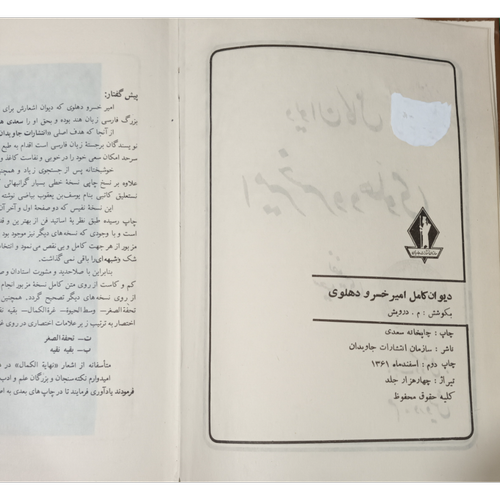 دیوان کامل امیر خسرو دهلوی
بکوشش : م . درویش
چاپ : چاپخانه سعدی
ناشر : سازمان انتشارات جاویدان
چاپ دوم : اسفندماه ۱۳۶۱
تیراژ : چهار هزار جلد
کلیه حقوق محفوظ
پیش گفتار:
امیر خسرو دهلوی که دیوان اشعارش برای
بزرگ فارسی زبان هند بوده و بحق او را سعدی
از آنجا که هدف اصلی «انتشارات جاویدان
نویسندگان برجستهٔ زبان فارسی است اقدام به طبع
سرحد امکان سعی خود را در خوبی و نفاست کاغذ و
خوشبختانه پس از جستجوی زیاد و همچنین
علاوه بر نسخ چاپی نسخهٔ خطی بسیار گرانبهائی
نستعلیق کاتبی بنام یوسف‌بن یعقوب بیاضی نوشته
این نسخهٔ نفیس که دو صفحهٔ اول و آخر آن
چاپ رسیده طبق نظر یا اساتید فن از بهترین و
است و با وجودی که نسخه‌های دیگر نیز موجود بود
مزبور از هر جهت کامل و بی نقص می‌نمود و
شک وشبهه‌ای را باقی نمی‌گذاشت.
بنابراین با صلاحدید و مشورت استادان و
کم و کاست از روی متن کامل نسخهٔ مزبور انجام
از روی نسخه‌های دیگر تصحیح گردد. همچنین
تحفة‌الصغر - وسط‌الحیوة - غرة‌الکمال - بقیه نقیه
اختصار به ترتیب زیر علامات اختصاری در روی
ت - تحفة‌الصغر
ب - بقیه نقیه
متأسفانه از اشعار «نهایة الکمال» در
امیدوارم نکته‌سنجان و بزرگان علم و ادب
فرمودند یادآوری فرمایند تا در چاپ‌های بعدی به